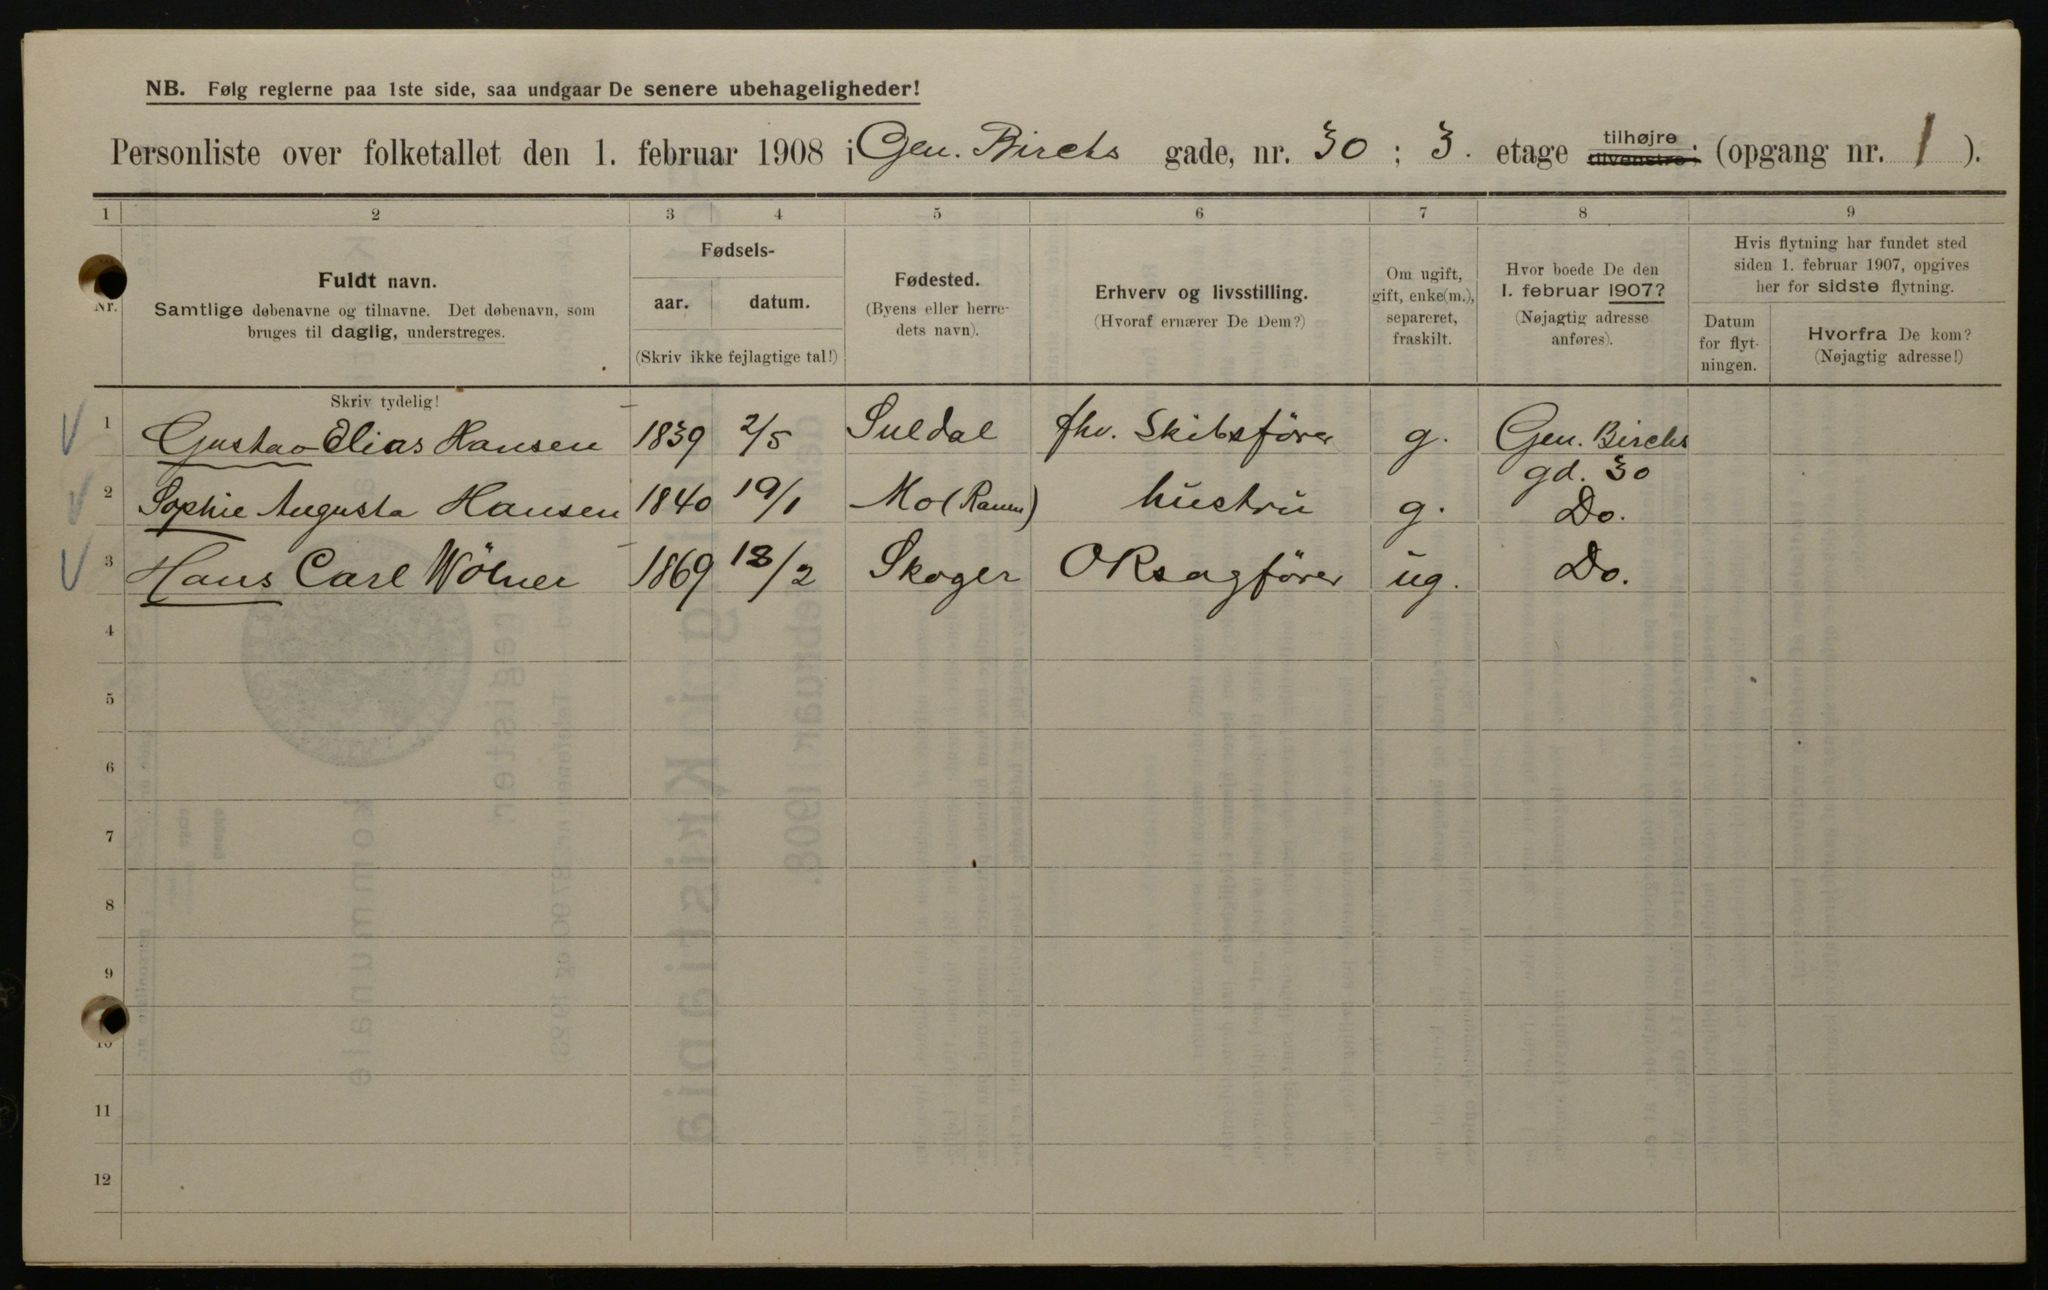 NB. Følg reglerne paa 1ste side, saa undgaar De senere ubehageligheder!
Personliste over folketallet den 1. februar 1908 i Gen. Birchs gade, nr. 30 ; 3. etage tilhøjre tilvenstre; (opgang nr. 1 ).
1 2 3 4 5 6 7 8 9
Nr.
Fuldt navn.
Samtlige døbenavne og tilnavne. Det døbenavn, som
bruges til daglig, understreges.
Skriv tydelig!
Fødsels-
aar. datum.
(Skriv ikke fejlagtige tal!)
Fødested.
(Byens eller herre-
dets navn).
Erhverv og livsstilling.
(Hvoraf ernærer De Dem?)
Om ugift,
gift, enke(m.),
separeret,
fraskilt.
Hvor boede De den
1. februar 1907?
(Nøjagtig adresse
anføres).
Hvis flytning har fundet sted
siden 1. februar 1907, opgives
her for sidste flytning.
Datum
for flyt-
ningen.
Hvorfra De kom?
(Nøjagtig adresse!)
1 Gustav Elias Hansen 1839 2/5 Suldal fhv. Skibsfører g. Gen. Birchs
gd. 30
2 Sophie Augusta Hansen 1840 19/1 Mo (Ranen) hustru g. Do.
3 Hans Carl Wölner 1869 18/2 Skoger ORsagfører ug. Do.
4
5
6
7
8
9
10
11
12